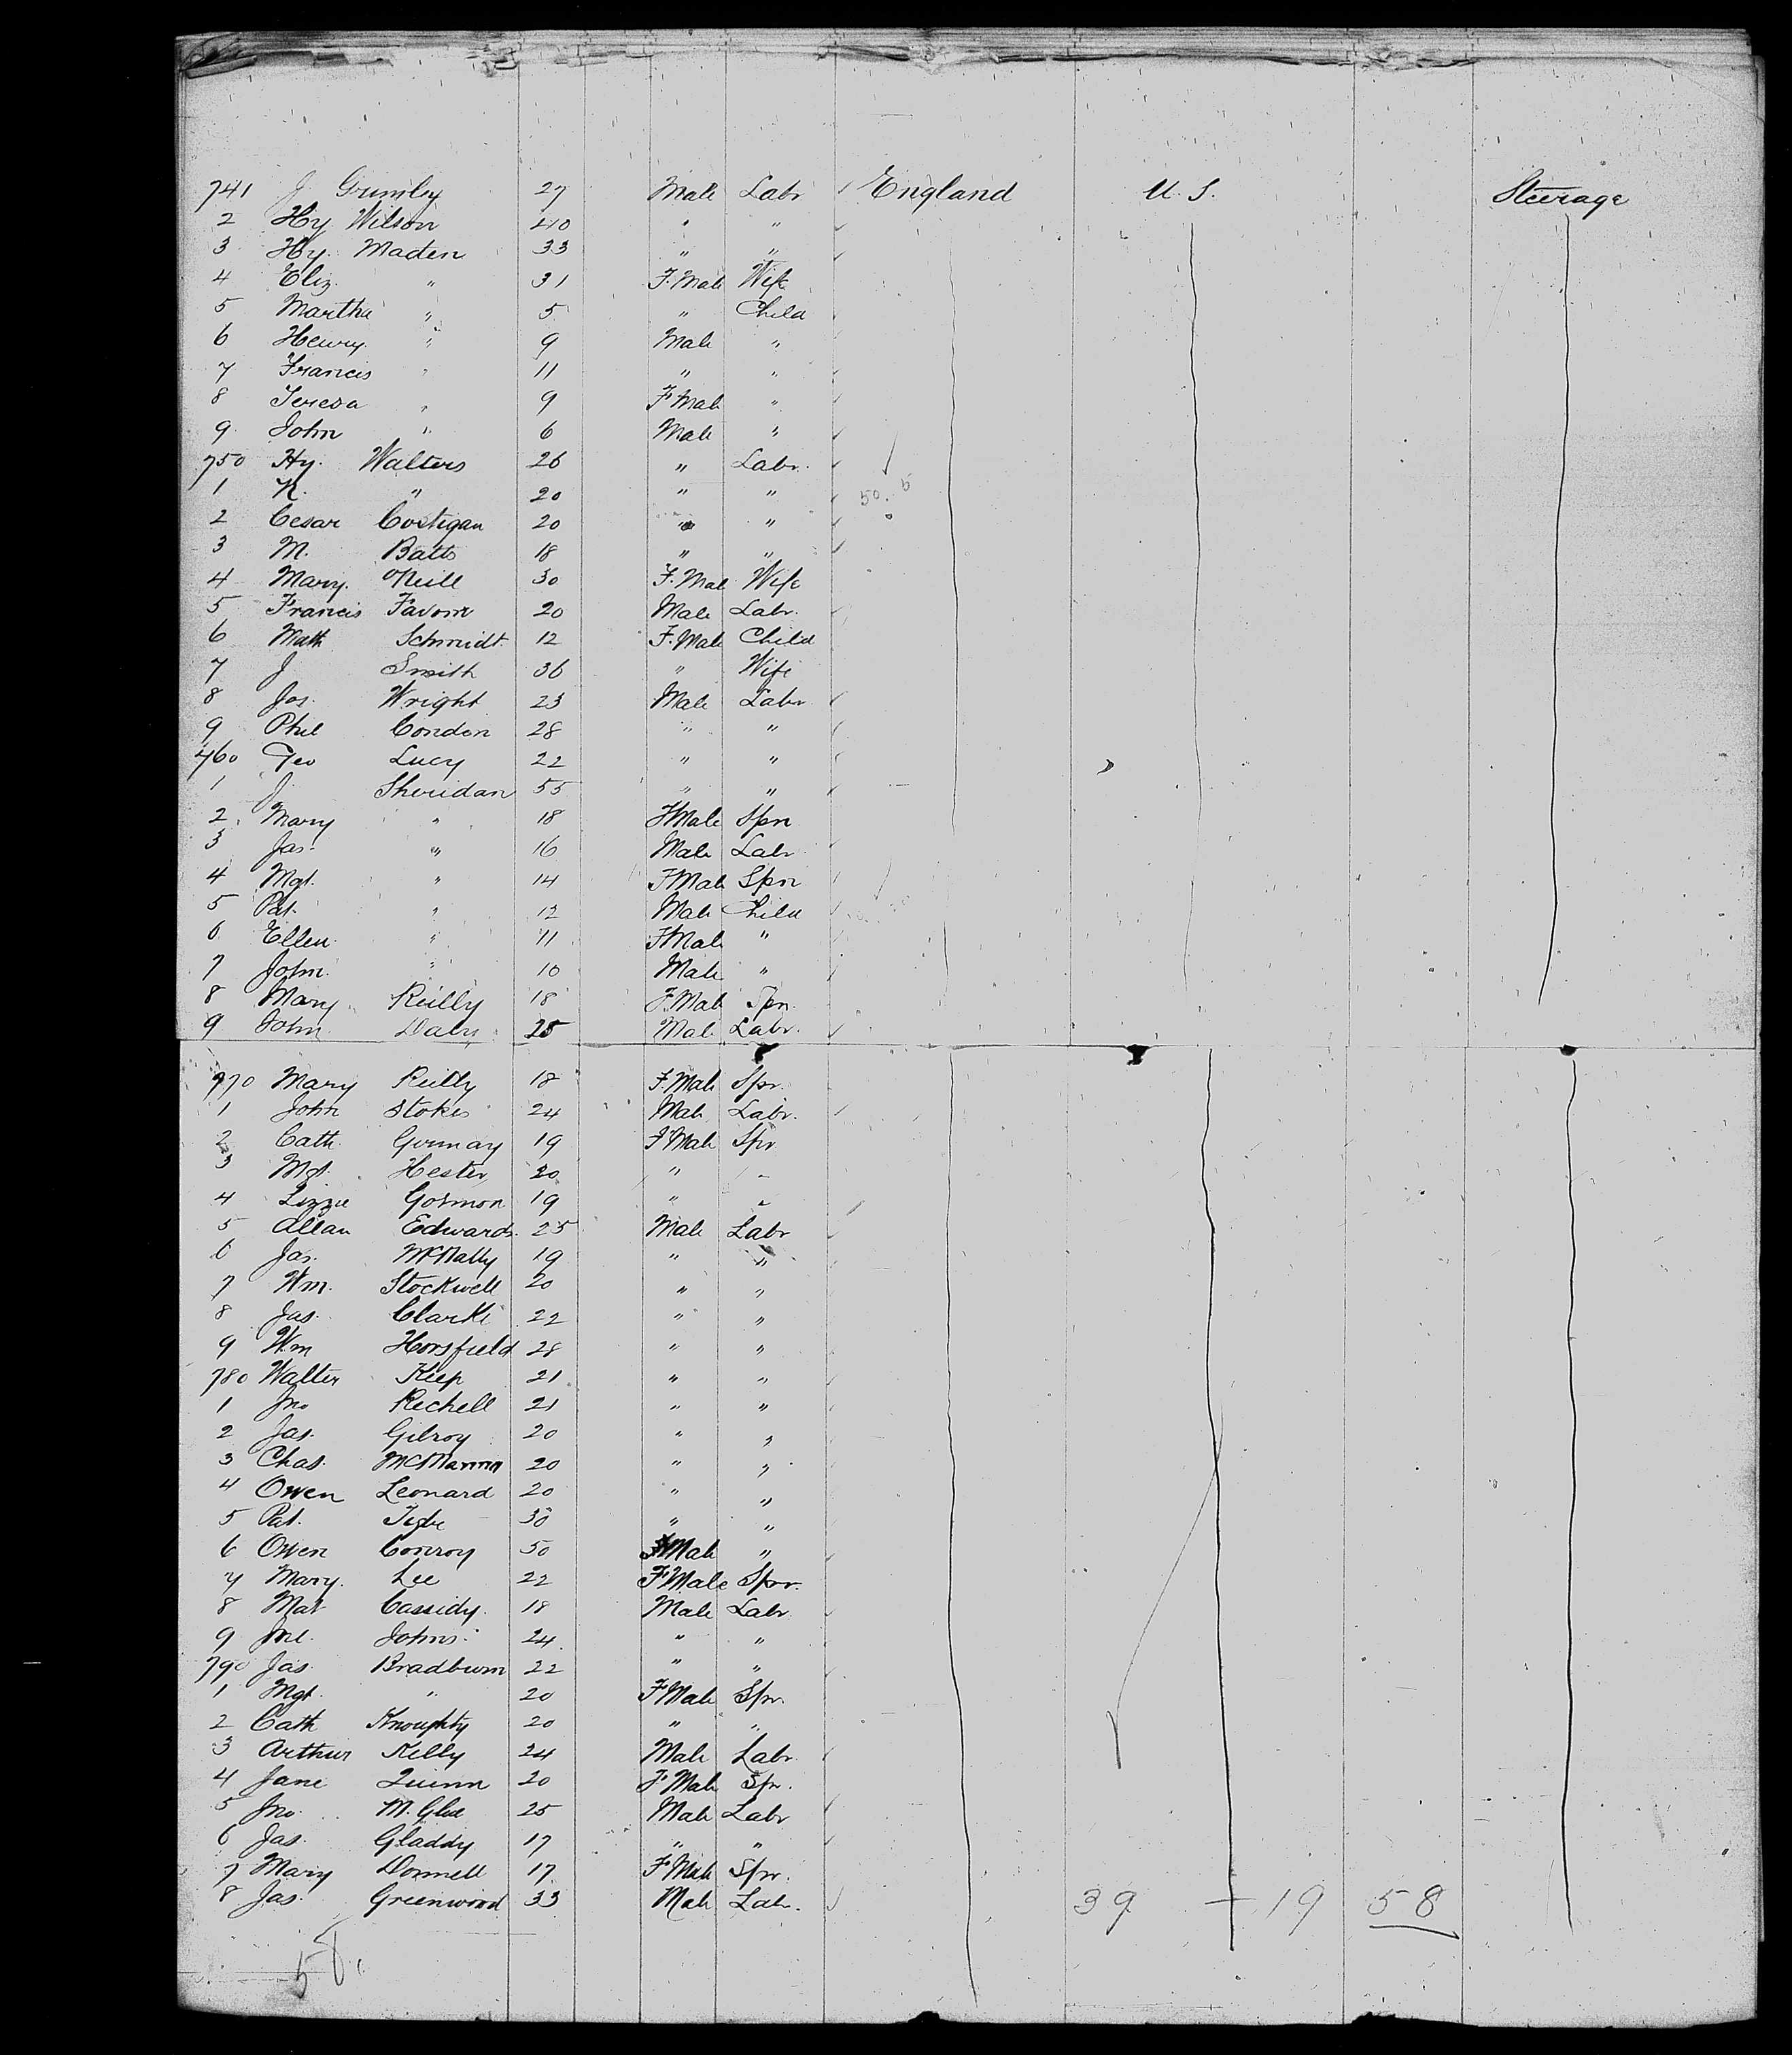 741 J Grimley 27 Male Labr England U.S. Steerage
2 Hy Wilson 40 " "
3 Hy. Maden 33 " "
4 Eliz. " 31 F. Male Wife
5 Martha " 5 " Child
6 Henry " 9 Male "
7 Francis " 11 " "
8 Teresa " 9 F Male "
9 John " 6 Male "
750 Hy. Walters 26 " Labr.
1 K. " 20 " "
2 Cesar Costigan 20 " "
3 M. Batts 18 " "
4 Mary. O'Neill 30 F. Male Wife
5 Francis 20 Male Labr.
6 Math Schmidt 12 F. Male Child
7 J Smith 36 " Wife
8 Jos. Wright 23 Male Labr
9 Phil Condon 28 " "
460 Geo Lucy 22 " "
1 J. Sheridan 55 " "
2 Mary " 18 F Male Spn
3 Jas. " 16 Male Labr
4 Mgt. " 14 F Male Spn
5 Pat. " 12 Male Child
6 Ellen " 11 F Male "
7 John " 10 Male "
8 Mary Reilly 18 F. Male Spn.
9 John Daly 25 Male Labr.
770 Mary Reilly 18 F. Male Spr.
1 John Stokes 24 Male Labr.
2 Cath. 19 F Male Spr
3 Mgt. Hester 20 " "
4 Lizzie Gormon 19 " "
5 Allan Edwards 25 Male Labr
6 Jas. McNally 19 " "
7 Wm. Stockwell 20 " "
8 Jas. Clarke 22 " "
9 Wm Horsfield 28 " "
780 Walter Keep 21 " "
1 Jno Rechell 21 " "
2 Jas. Gilroy 20 " "
3 Chas. 20 " "
4 Owen Leonard 20 " "
5 Pat. Tighe 30 " "
6 Owen Conroy 50 Male "
7 Mary. Lee 22 F Male Spr.
8 Mat Cassidy. 18 Male Labr
9 Johns 24 " "
790 Jas. Bradburn 22 " "
1 Mgt. " 20 F Male Spr.
2 Cath Knoughty 20 " "
3 Arthur Kelly 24 Male Labr
4 Jane Quinn 20 F Male Spr.
5 Jno. 25 Male Labr
6 Jas. Gladdy 17 " "
7 Mary Donnell 17 F Male Spr.
8 Jas. Greenwood 33 Male Labr.
39 + 19 58
58